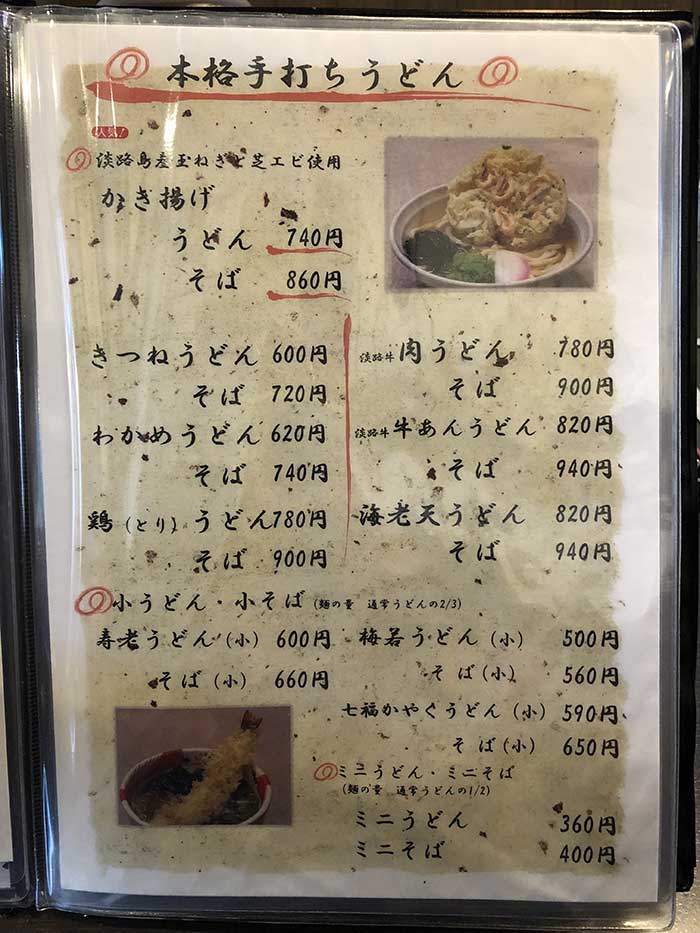 本格手打ちうどん
人気！
淡路島産玉ねぎと芝エビ使用
かき揚げ
うどん 740円
そば 860円
きつねうどん 600円
そば 720円
わかめうどん 620円
そば 740円
鶏(とり)うどん 780円
そば 900円
淡路牛 肉うどん 780円
そば 900円
淡路牛 牛あんうどん 820円
そば 940円
海老天うどん 820円
そば 940円
小うどん・小そば(麺の量 通常うどんの2/3)
寿老うどん(小) 600円
そば(小) 660円
梅若うどん(小) 500円
そば(小) 560円
七福かやくうどん(小) 590円
そば(小) 650円
ミニうどん・ミニそば
(麺の量 通常うどんの1/2)
ミニうどん 360円
ミニそば 400円